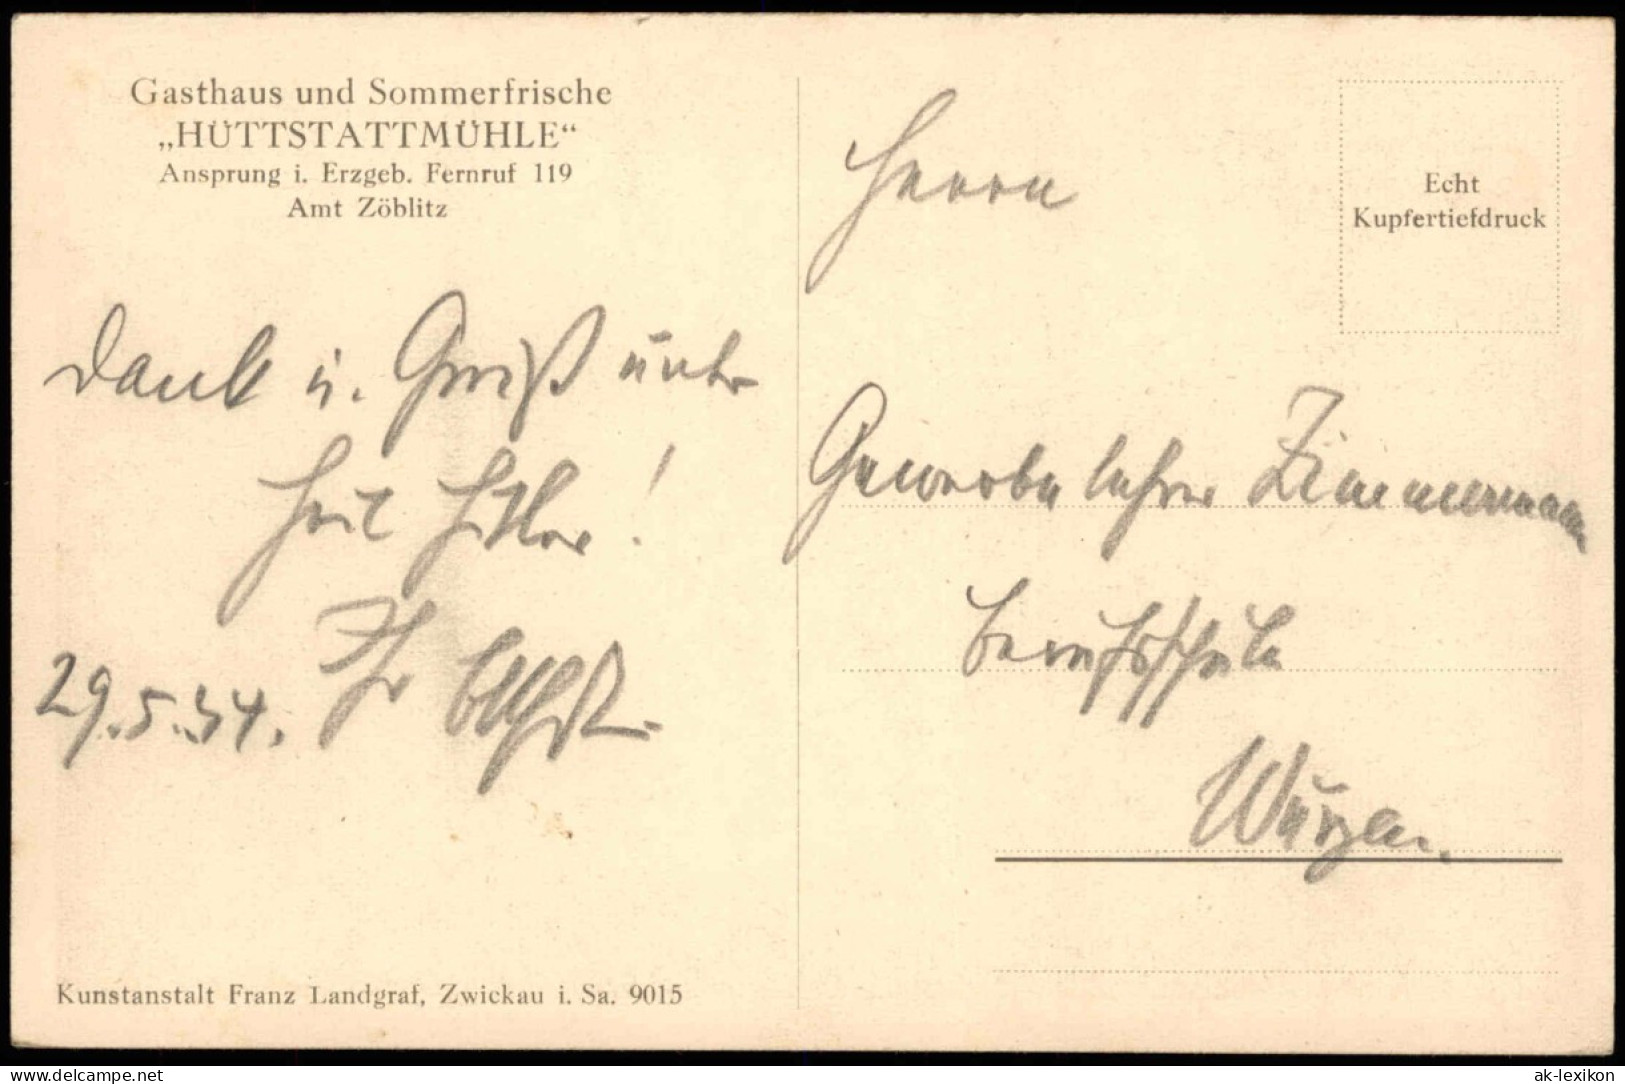 Gasthaus und Sommerfrische
„HÜTTSTATTMÜHLE“
Ansprung i. Erzgeb. Fernruf 119
Amt Zöblitz
Dank u. Gruß unter
Heil Hitler!
Ihr
29.5.34.
Kunstanstalt Franz Landgraf, Zwickau i. Sa. 9015
Echt
Kupfertiefdruck
Herrn
Gewerbelehrer Zimmermann
Berufsschule
Wurzen.
delcampe.net
ak-lexikon